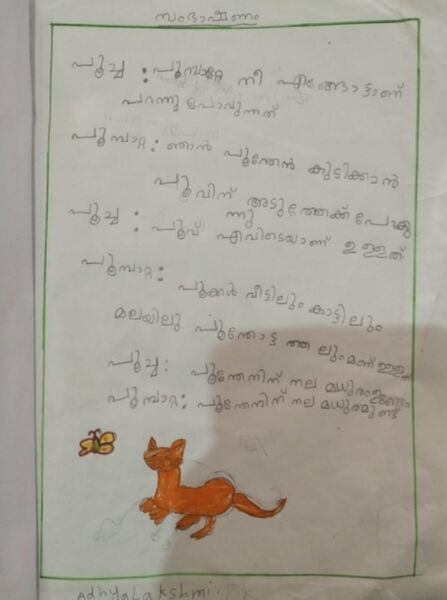 സംഭാഷണം
പൂച്ച : പൂമ്പാറ്റേ നീ എങ്ങോട്ടാണ്
പറന്നു പോവുന്നത്
പൂമ്പാറ്റ : ഞാൻ പൂന്തേൻ കുടിക്കാൻ
പൂവിന് അടുത്തേക്ക് പോകു
ന്നു
പൂച്ച : പൂവ് എവിടെയാണ് ഉള്ളത്
പൂമ്പാറ്റ :
പൂക്കൾ വീട്ടിലും കാട്ടിലും
മലയിലു പൂന്തോട്ടത്തലും
പൂച്ച : പൂന്തേനിന് നല മധുരം
പൂമ്പാറ്റ : പൂന്തേനിന് നല മധുരമുണ്ട്
Adhyalakshmi. P.K